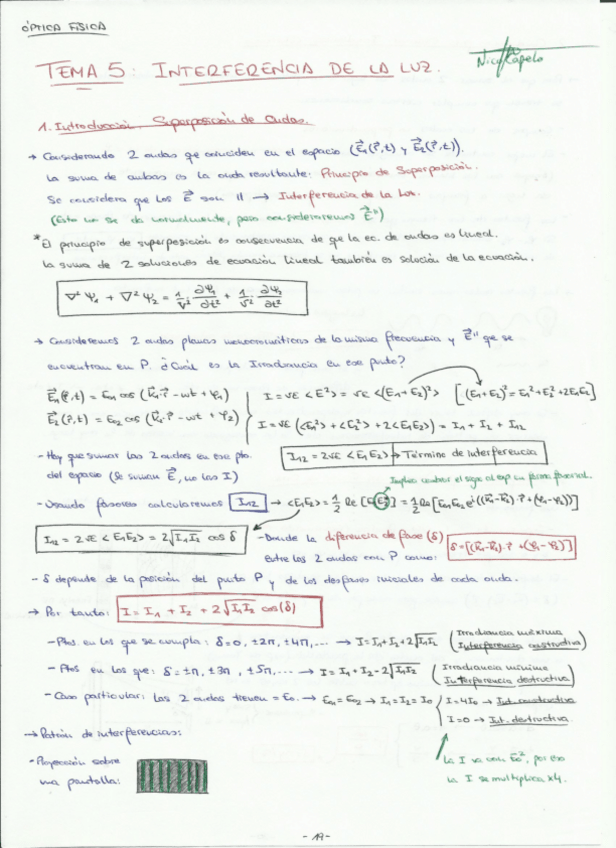 ÓPTICA FÍSICA
TEMA 5: INTERFERENCIA DE LA LUZ.
Nico Capelo
1. Introducción. Superposición de Ondas.
→ Considerando 2 ondas qe coinciden en el espacio (E⃗₁(r⃗,t) y E⃗₂(r⃗,t)).
La suma de ambas es la onda resultante: Principio de Superposición.
Se considera que los E⃗ son || → Interferencia de la Luz.
(Esto no se da normalmente, pero consideraremos E⃗")
*El principio de superposición es consecuencia de qe la ec. de ondas es lineal.
La suma de 2 soluciones de ecuación lineal también es solución de la ecuación.
∇²Ψ₁ + ∇²Ψ₂ = 1/v² ∂Ψ₁/∂t² + 1/v² ∂Ψ₂/∂t²
→ Consideremos 2 ondas planas monocromáticas de la misma frecuencia y E⃗" qe se
encuentran en P. ¿Cuál es la Irradiancia en ese punto?
E⃗₁(r⃗,t) = E₀₁ cos (k⃗₁·r⃗ - wt + φ₁)
E⃗₂(r⃗,t) = E₀₂ cos (k⃗₂·r⃗ - wt + φ₂)
I = vε <E²> = vε <(E₁+E₂)²> [(E₁+E₂)² = E₁²+E₂²+2E₁E₂]
I = vε (<E₁²> + <E₂²> + 2<E₁E₂>) = I₁ + I₂ + I₁₂
- Hay que sumar las 2 ondas en ese pto.
del espacio (Se suman E⃗, no las I)
I₁₂ = 2vε <E₁E₂> → Término de interferencia
Implica cambiar el signo al exp en forma fasorial.
- Usando fasores calcularemos I₁₂ → <E₁E₂> = 1/2 Re [E₁E₂*] = 1/2 Re [E₀₁E₀₂ e^i((k⃗₁-k⃗₂)·r⃗ + (φ₁-φ₂))]
I₁₂ = 2vε <E₁E₂> = 2√I₁I₂ cos δ
- Donde la diferencia de fase (δ)
entre las 2 ondas con P como:
δ = [(k⃗₁-k⃗₂)·r⃗ + (φ₁-φ₂)]
- δ depende de la posición del punto P y de los desfases iniciales de cada onda.
→ Por tanto: I = I₁ + I₂ + 2√I₁I₂ cos(δ)
- Ptos. en los que se cumpla: δ=0, ±2π, ±4π,... → I = I₁+I₂+2√I₁I₂ (Irradiancia máxima
Interferencia constructiva)
- Ptos en los que: δ = ±π, ±3π, ±5π,... → I = I₁+I₂-2√I₁I₂ (Irradiancia mínima
Interferencia destructiva)
- Caso particular: las 2 ondas tienen = E₀. → E₀₁ = E₀₂ → I₁ = I₂ = I₀ { I = 4I₀ → Int. constructiva.
I = 0 → Int. destructiva.
→ Patrón de interferencias:
- Proyección sobre
una pantalla:
La I va con E₀², por eso
la I se multiplica x4.
- 19 -